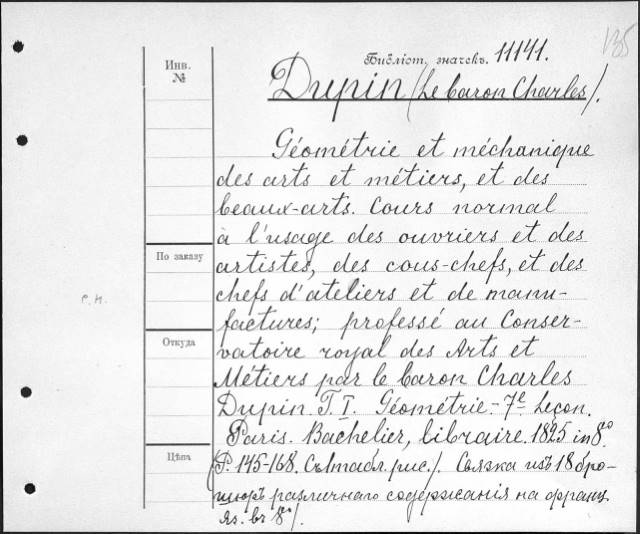 135
Библіот. значекъ. 11141.
Инв.
№
Dupin (Le baron Charles).
Géométrie et méchanique
des arts et métiers, et des
beaux-arts. Cours normal
à l'usage des ouvriers et des
artistes, des cous-chefs, et des
По заказу
chefs d'ateliers et de manu-
р. н.
factures; professé au Conser-
Откуда
vatoire royal des Arts et
Métiers par le baron Charles
Dupin. T. I. Géométrie.- 7e Leçon.
Paris. Bachelier, libraire. 1825 in 8o
Цѣна
(P. 145-168. Съ 1 табл. рис.). Связка изъ 18 бро-
шюръ различнаго содержанія на франц.
яз. въ 8o).